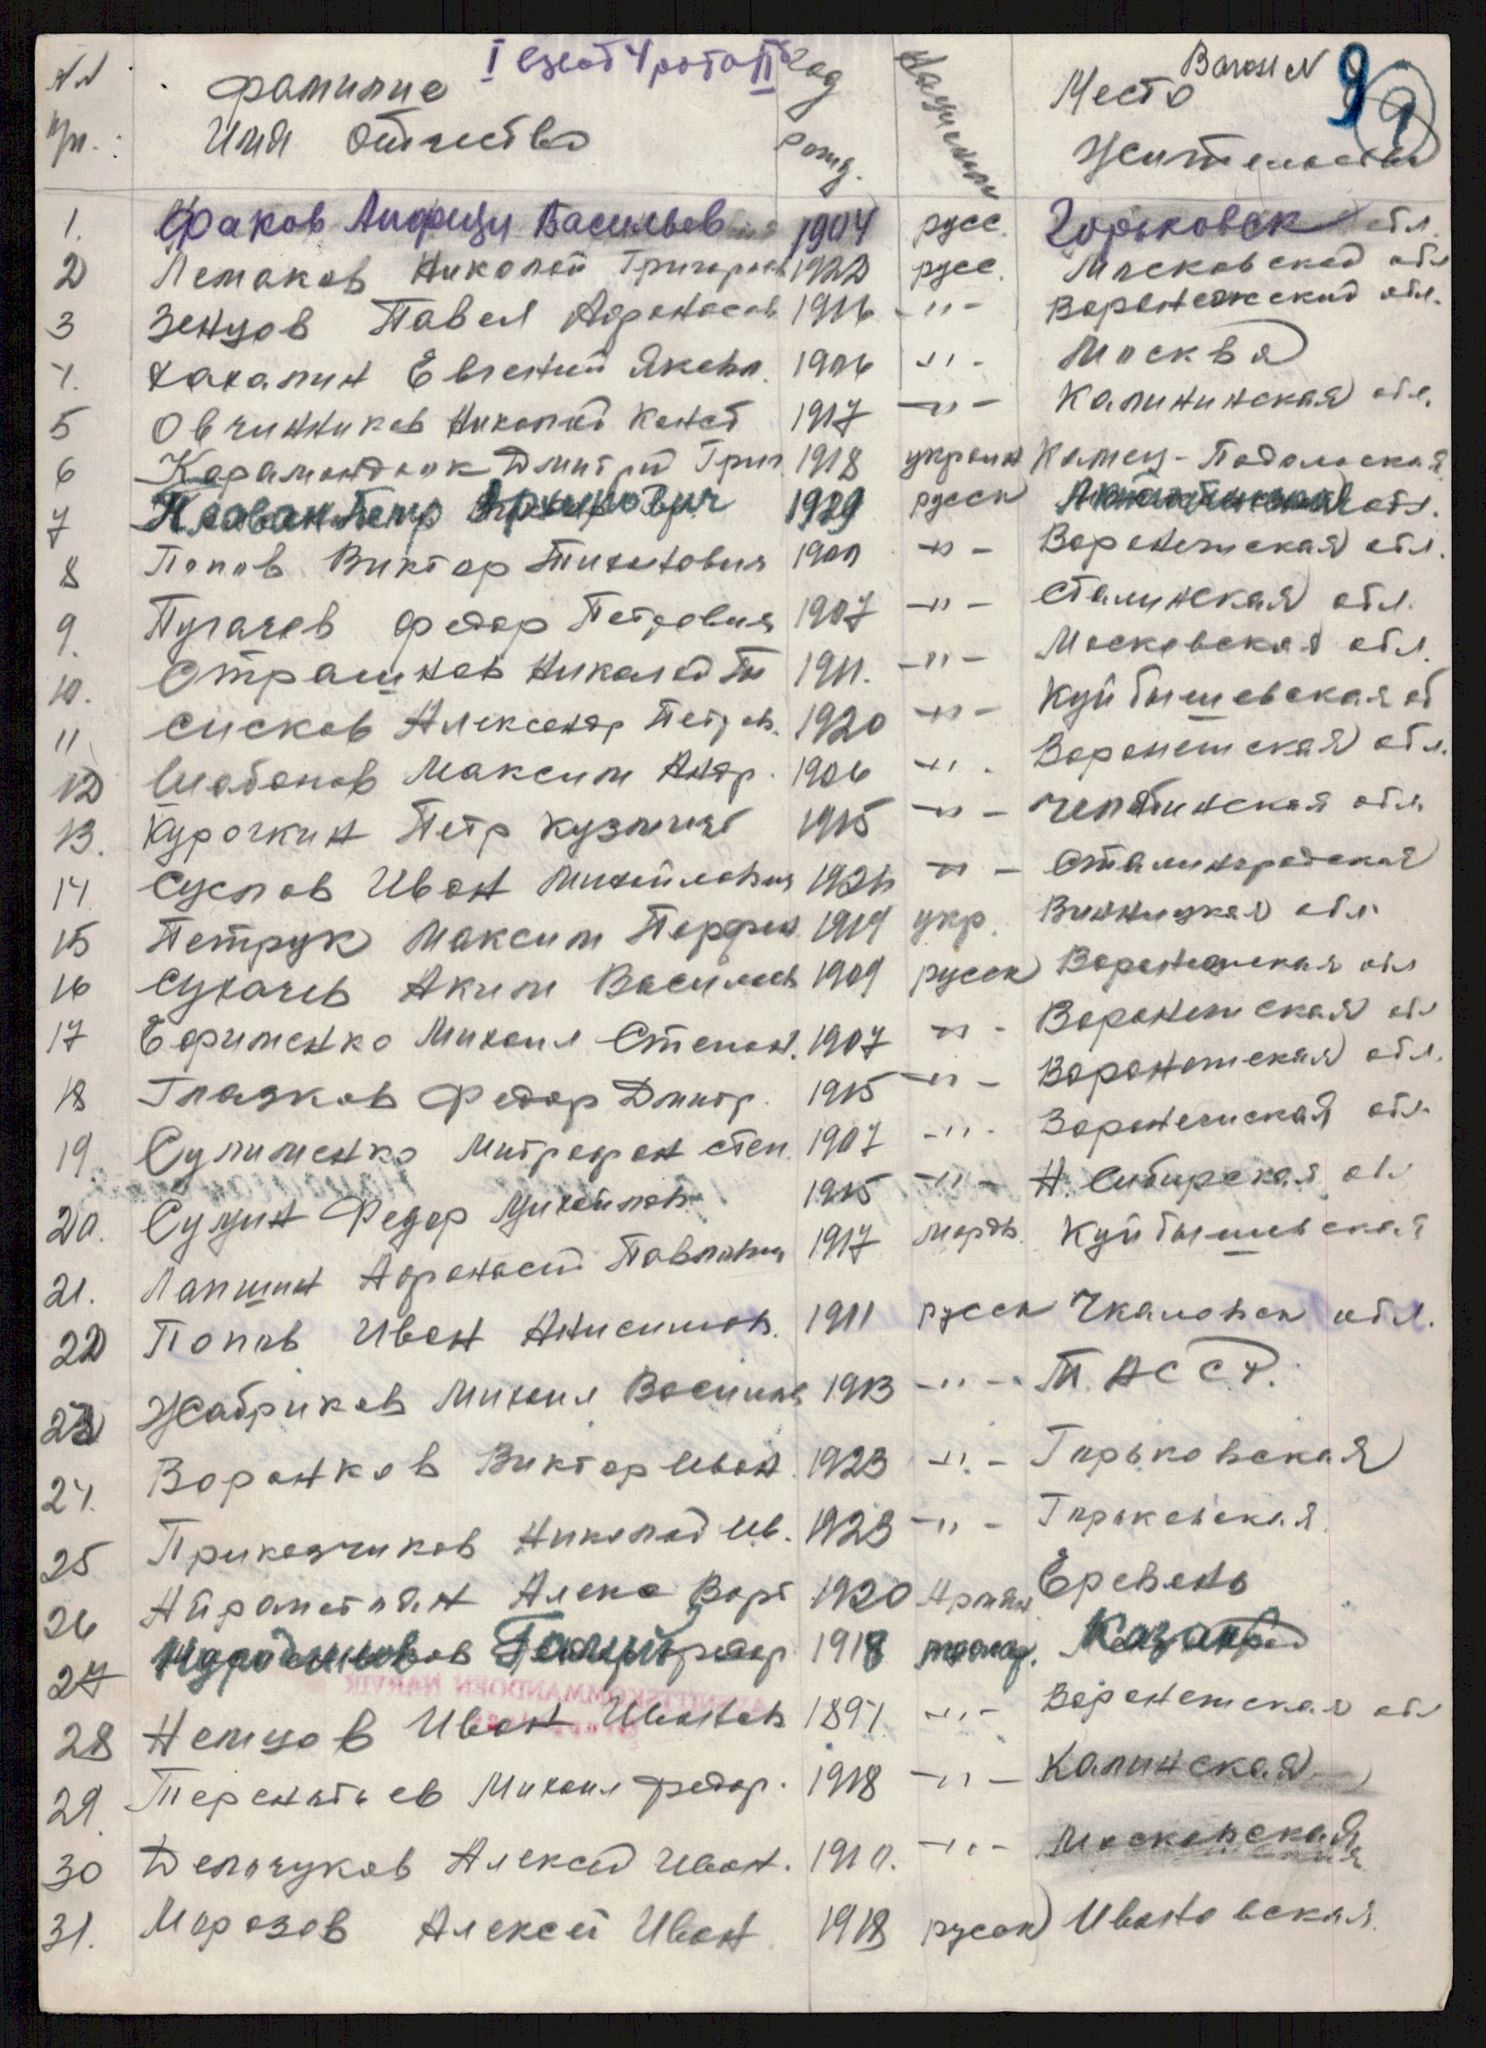 I взвод 4 рота II
№№ п/п. Фамилие Имя Отчество Год рожд. Национальн Место Жительства Вагон N 9 9
1. Факов Васильев 1904 русс. Горьковск обл.
2 Лемаков Николай Григорьев 1922 русс. Московской обл
3 Зенцов Павел Афонасов 1916 -"- Воронежский обл.
4. Хахалин Евгений Яковл. 1906 -"- Москва
5 Овчинников Николай Конст 1917 -"- Калининская обл.
6 Карамондюк Дмитрий Григ 1918 украин Камец-Подольская
7 Петр 1929 русск обл.
8 Попов Виктор Тихонович 1900 -"- Воронежская обл.
9. Пугачев Федор Петрович 1907 -"- Сталинская обл.
10. Страшнов Николай Т 1911. -"- Московская обл.
11 Сисков Александр Петров. 1920 -"- Куйбышевская об
12 Шабанов Максим Андр. 1906 -"- Воронежская обл.
13. Курочкин Петр Кузмич 1915 -"- Челябинская обл
14 Суслов Иван Михайлович -"- Сталинградская
15 Петрук Максим Парфен 1919 укр. Винницкая обл
16 Сухачев Аким Васильев 1909 русск Воронежская обл
17 Ефименко Михаил Степан. 1907 -"- Воронежская обл
18 Глазков Федор Дмитр. 1915 -"- Воронежская обл.
19. Сулименко Митрофан Степ. 1907 -"- Воронежская обл.
20. Сущин Федор Михайлов 1915 -"- Н. Сибирская обл
21. Лапшин Афонасий Павлович 1917 мордв. Куйбышевская
22 Попов Иван Анисимов. 1911 русск Чкаловск обл.
23 Жабриков Михаил Васильев 1913 -"- Т. АССР.
24. Воронков Виктор Иван. 1923 -"- Горьковская
25 Приказчиков Николай Ив. 1923 -"- Горьковская
26 Айрапетьян Алекс Варт 1920 Армян. Еревень
27 1918 татар. Казань
28 Немцов Иван Иванов 1897. -"- Воронежская обл
29. Терентьев Михаил Федор. 1918 -"- Калинская
30 Демчуков Алексей Иван. 1910. -"- Московская
31. Морозов Алексей Иван 1918 русск Ивановская.